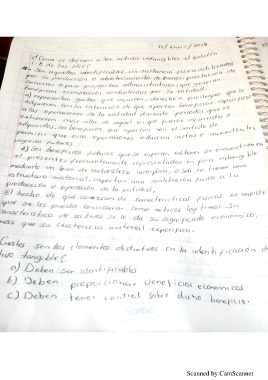 11/enero/2018
¿Cómo se definen a los activos intangibles el boletín
C-8 de las NIF?
Son aquellos identificables, sin sustancia física, utilizados
por la producción o abastecimiento de bienes, prestación de
servicios o para propósitos administrativos, que generan
beneficios económicos controlados por la entidad.
a) representan gastos que incurren, derechos o privilegios que se
adquieren con la intención de que aporten beneficios específicos
a las operaciones de la entidad durante periodos que se
extienden más allá de aquel en que fueron incurridos o
adquiridos, los beneficios que aportan son el sentido de
permitir que esas operaciones reduzcan costos o aumenten los
ingresos futuros.
b) Los beneficios futuros que se esperan obtener se encuentran en
el presente, frecuentemente representados en forma intangible
mediante un bien de naturaleza incorpórea, o sea no tiene una
estructura material, ni aportan una contribución física a la
producción u operación de la entidad.
El hecho de que carezcan de características físicas no impide
que se les pueda considerar como activos legítimos. Su
característica de activos se les da su significado económico,
más que su existencia material específica.
Cuáles son los elementos distintivos en la identificación de
tangible?
a) Deben ser identificables
b) Deben proporcionar beneficios económicos
c) Deben tener control sobre dicho beneficio.
Scribe
Scanned by CamScanner